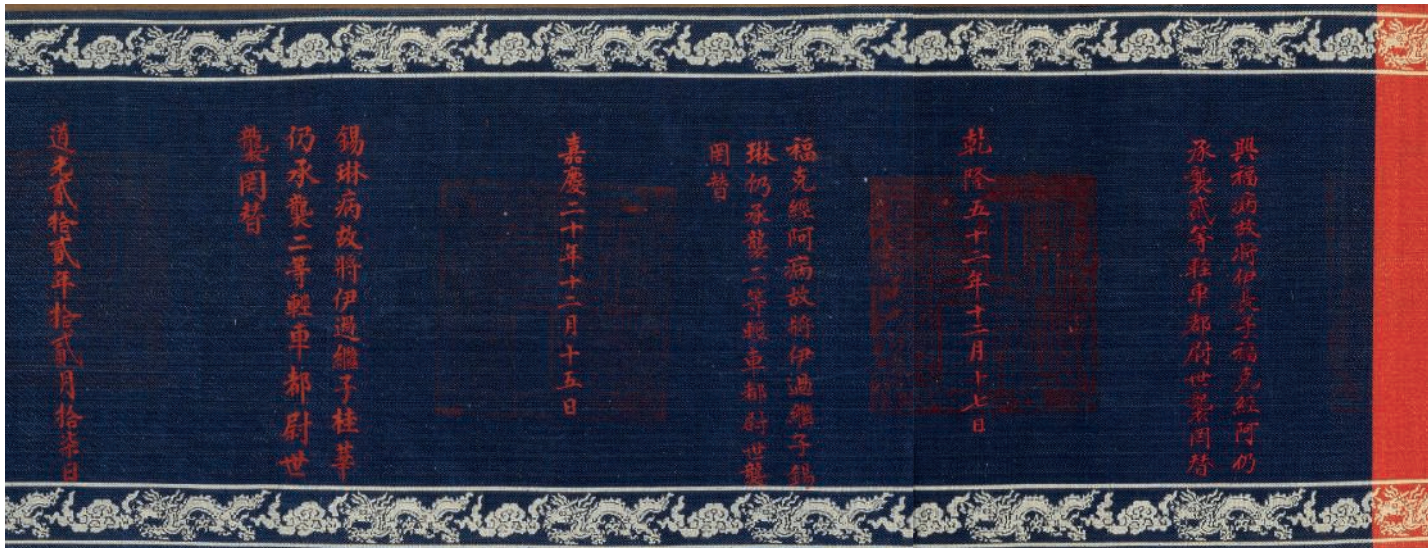 興福病故將伊長子福克經阿仍
承襲貳等輕車都尉世襲罔替
乾隆五十二年十二月十七日
福克經阿病故將伊過繼子錫
琳仍承襲二等輕車都尉世襲
罔替
嘉慶二十年十二月十五日
錫琳病故將伊過繼子桂華
仍承襲二等輕車都尉世
襲罔替
道光貳拾貳年拾貳月拾柒日